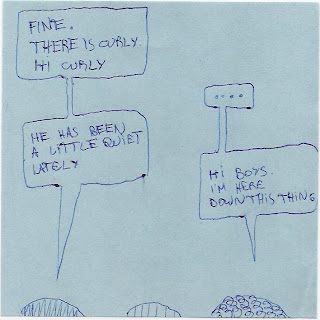 FINE.
THERE IS CURLY.
HI CURLY
HE HAS BEEN
A LITTLE QUIET
LATELY
....
HI BOYS.
I'M HERE
DOWN THIS THING